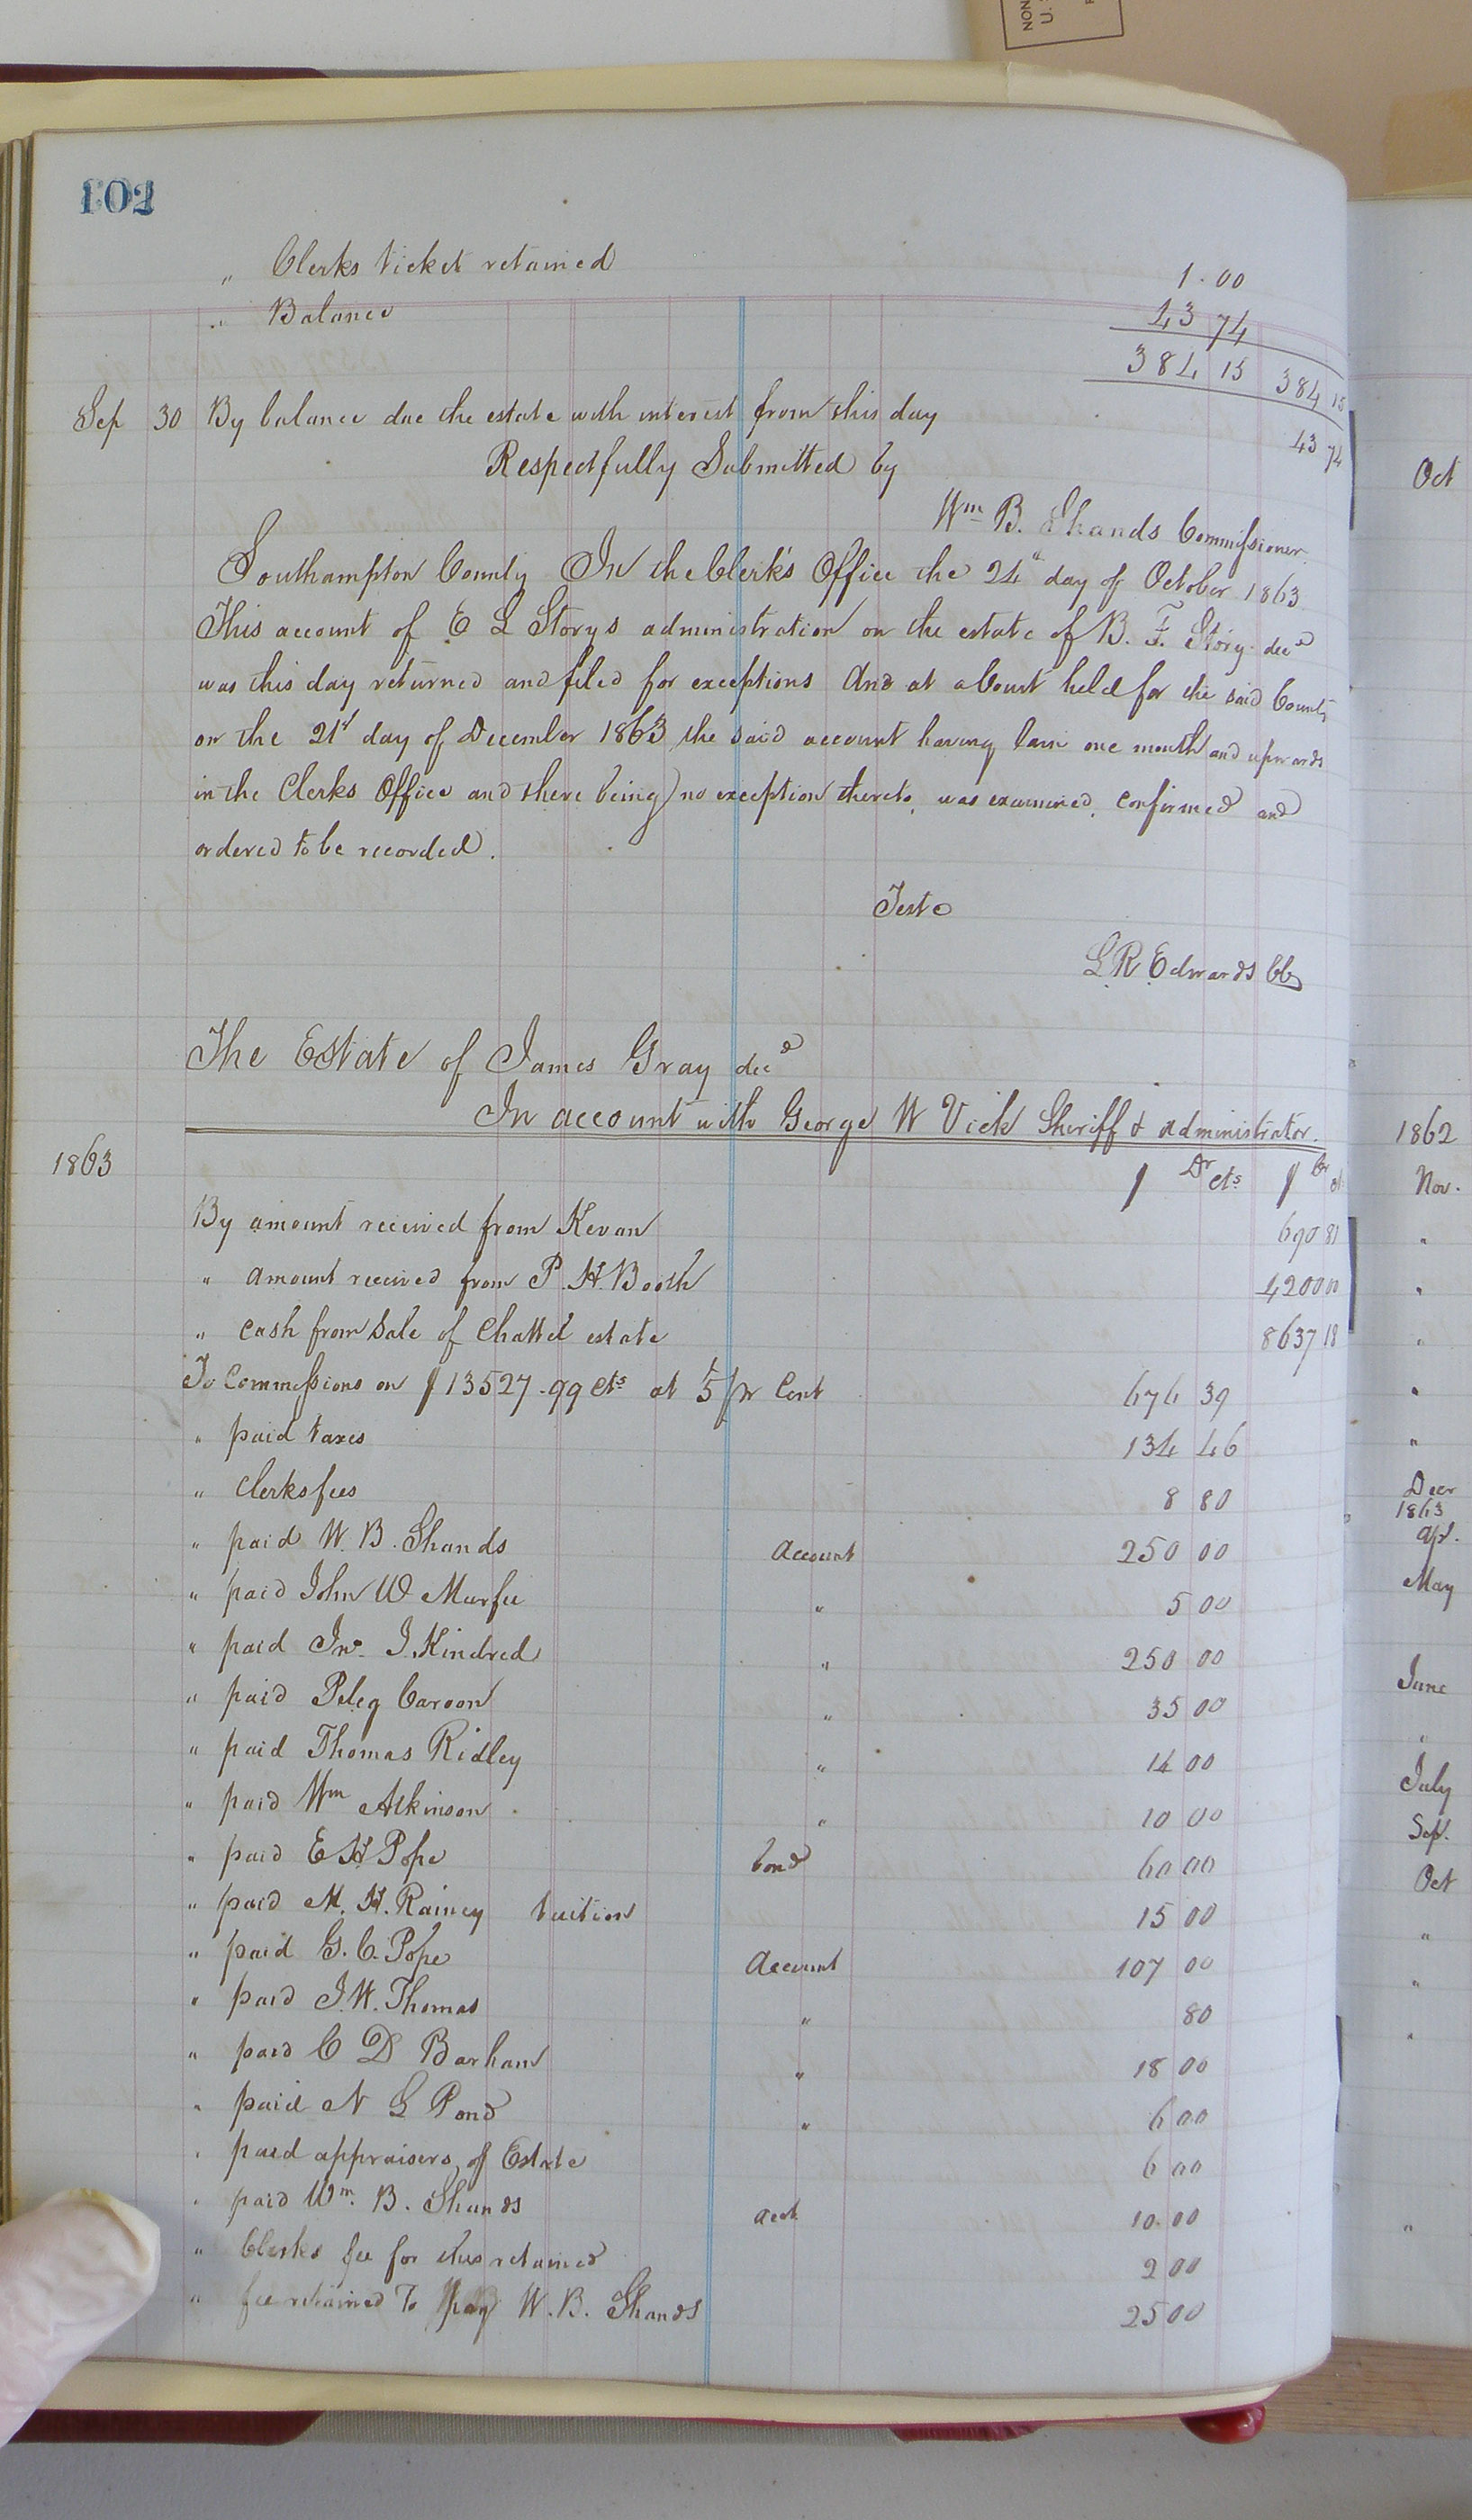 NON
U.
102
" Clerks ticket retained 1.00
" Balance 43 74
384 15 384 15
Sep 30 By balance due the estate with interest from this day 43 74
Respectfully Submitted by
Wm B. Shands Commissioner
Southampton County In the Clerk's Office the 24th day of October 1863
This account of E L Storys administration on the estate of B. F. Story decd
was this day returned and filed for exceptions And at a Court held for the said County
on the 21st day of December 1863 the said account having lain one month and upwards
in the Clerks Office and there being no exception thereto, was examined, confirmed and
ordered to be recorded.
Teste
L. R. Edwards CC
The Estate of James Gray decd
In account with George W Vick Sheriff & administrator.
1863 $ Dr cts $ Cr ct
By amount received from Kevan 690 81
" amount received from P. H. Booth 4200 00
" cash from sale of Chattel estate 8637 18
To Commissions on $13527.99 cts at 5 pr Cent 676 39
" paid taxes 134 46
" Clerks fees 8 80
" paid W. B. Shands Account 250 00
" paid John W Murfee " 5 00
" paid Jno. J. Kindred " 250 00
" paid Peleg Caroon " 35 00
" paid Thomas Ridley " 14 00
" paid Wm Atkinson " 10 00
" paid E H Pope bond 60 00
" paid M. H. Rainey tuition 15 00
" paid G. C. Pope Account 107 00
" paid J. W. Thomas " 80
" paid C D Barham " 18 00
" paid N L Pond " 6 00
" paid appraisers of Estate 6 00
" paid Wm. B. Shands acct 10.00
" Clerks fee for this retained 2 00
" fee retained To pay W. B. Shands 25 00
Oct
1862
Nov.
"
"
"
"
"
Decr
1863
Apl.
May
June
"
July
Sep.
Oct
"
"
"
"